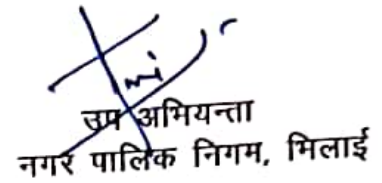 उप अभियन्ता
नगर पालिक निगम, भिलाई